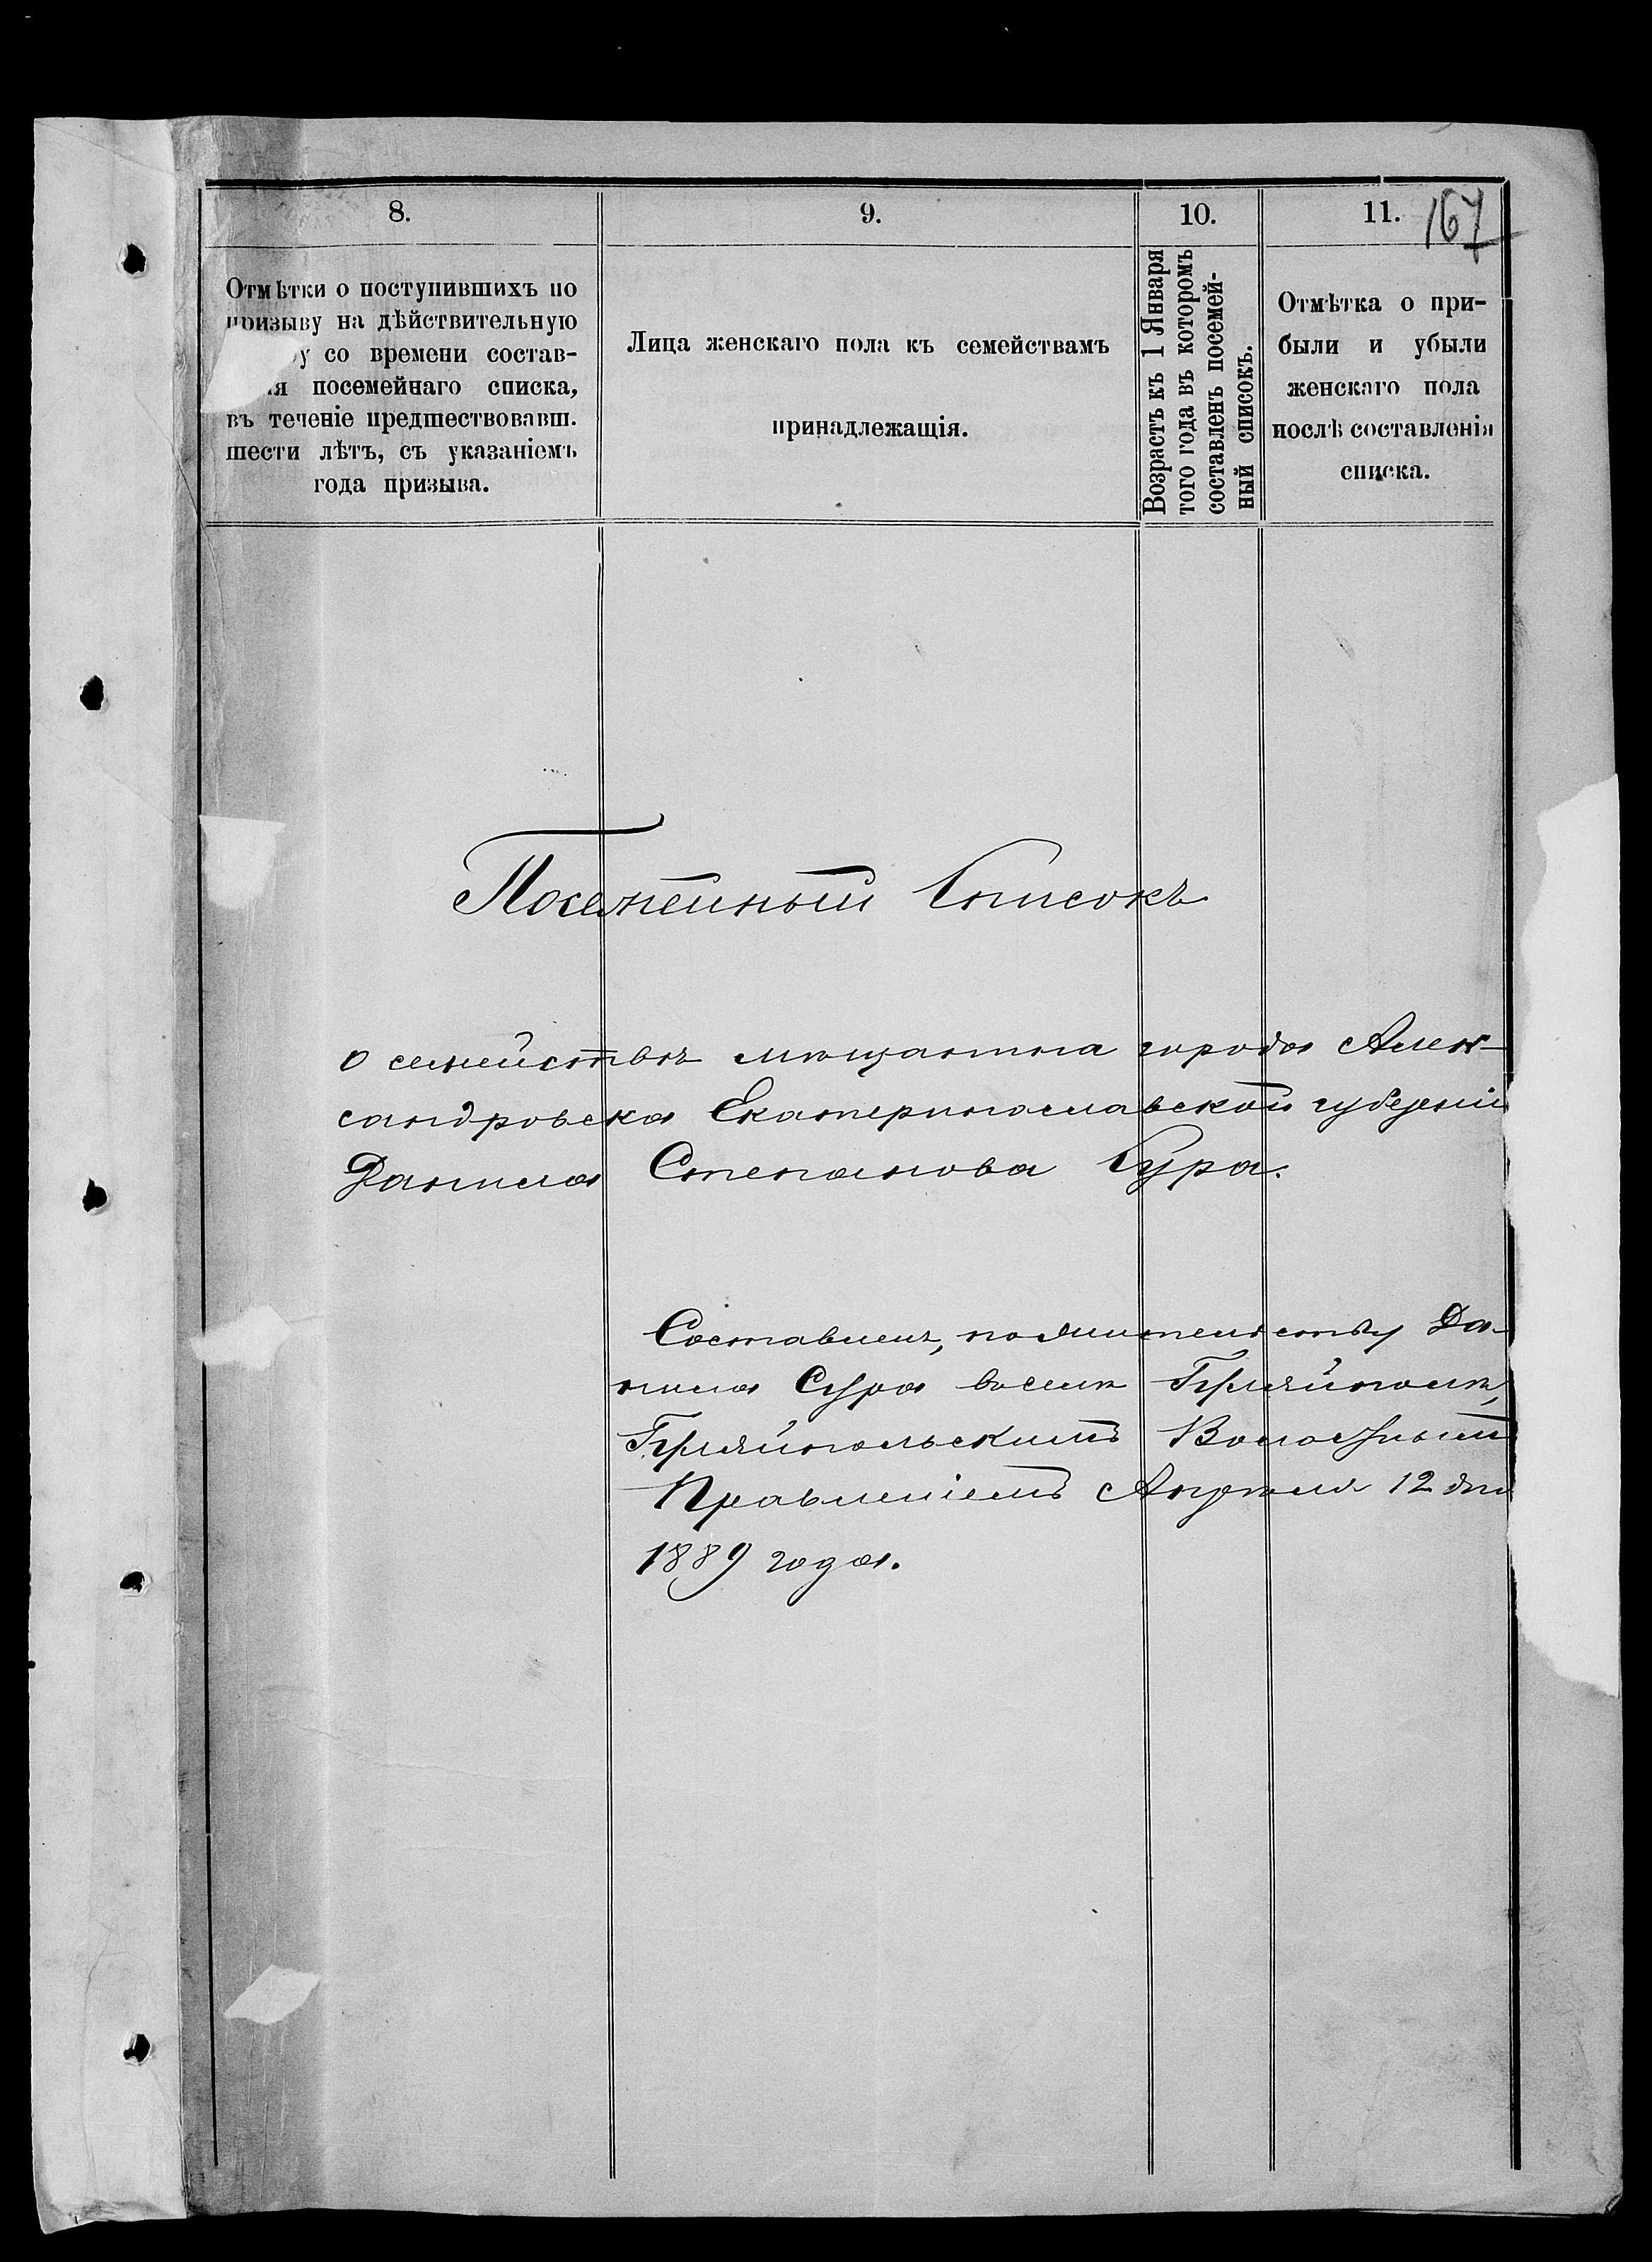 8.
9.
10.
11.
167
Отмѣтки о поступившихъ по
призыву на дѣйствительную
у со времени состав-
ія посемейнаго списка,
въ теченіе предшествовавш.
шести лѣтъ, съ указаніемъ
года призыва.
Лица женскаго пола къ семействамъ
принадлежащія.
Возрастъ къ 1 Января
того года въ которомъ
составленъ посемей-
ный списокъ.
Отмѣтка о при-
были и убыли
женскаго пола
послѣ составленія
списка.
Посемейный Списокъ
о семействѣ мѣщанина города Алек-
сандровска Екатеринославской губерніи
Данила Степанова Сура.
Составленъ, по жительству Да-
нила Сура въ селѣ Гуляйполѣ,
Гуляйпольскимъ Волостнымъ
Правленіемъ Апрѣля 12 дня
1889 года.